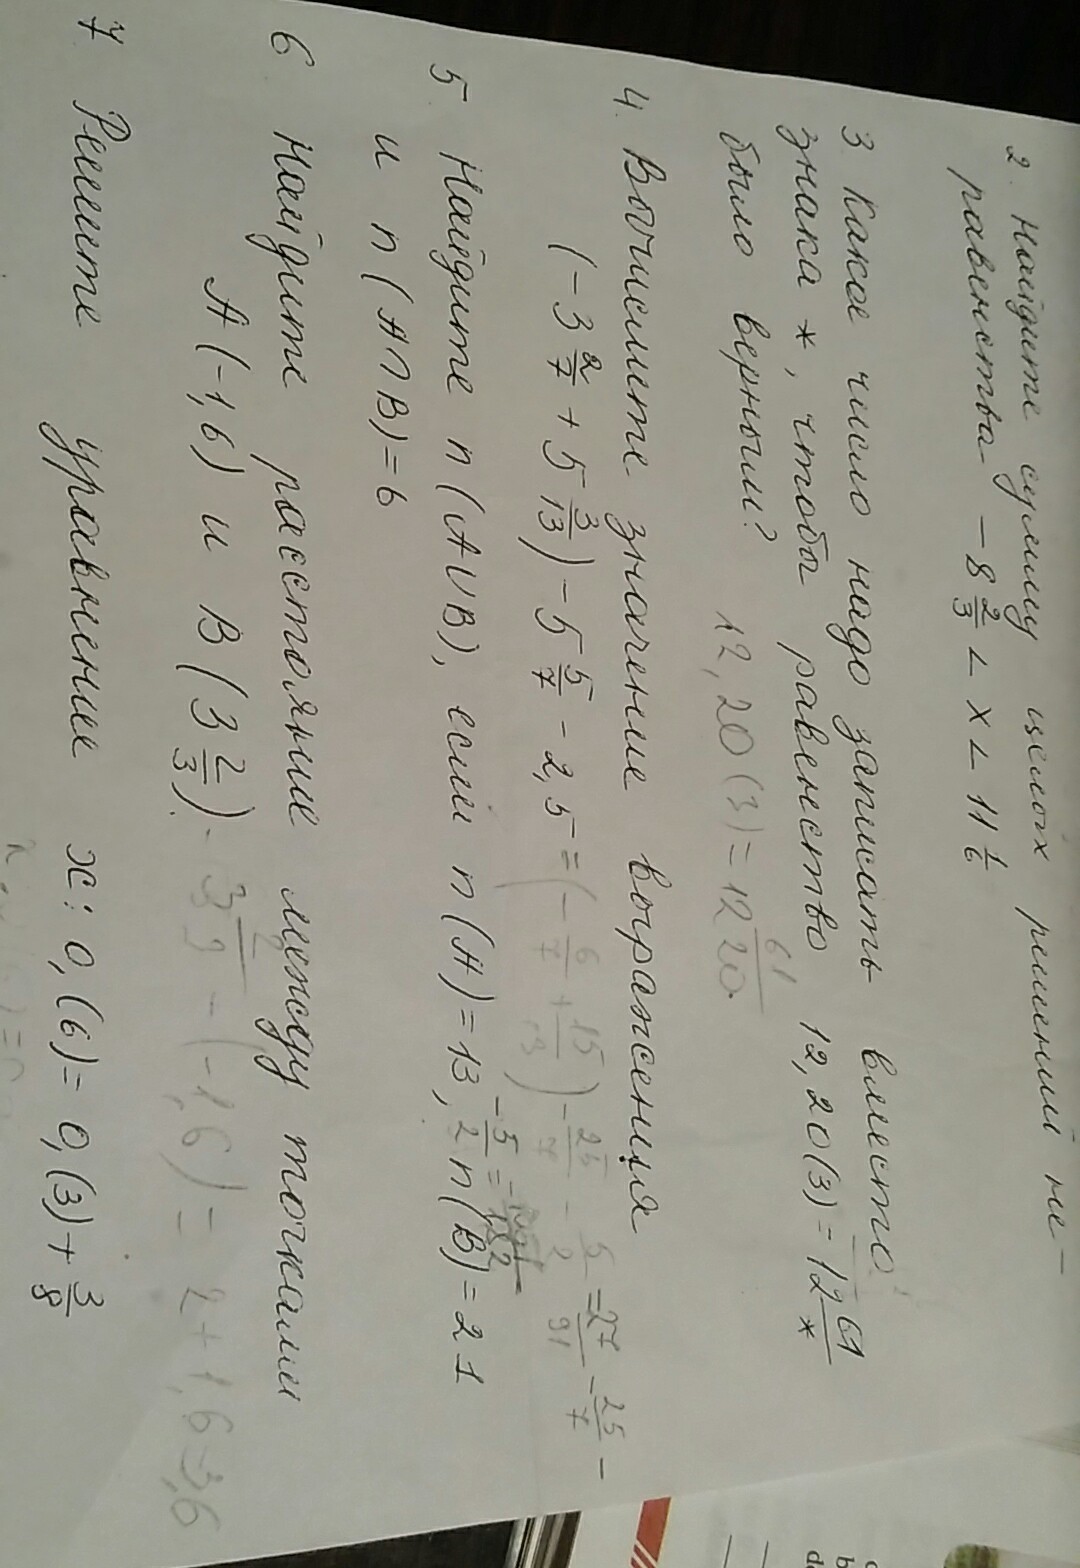 2. Найдите сумму целых решений не-
равенства - 8 2/3 < x < 11 1/6
3 Какое число надо записать вместо
знака *, чтобы равенство 12,20(3) = 12 61/*
было верным? 12,20(3) = 12 61/20
4. Вычислите значение выражения
(-3 2/7 + 5 3/13) - 5 5/7 - 2,5 = (- 6/7 + 15/13) - 25/7 - 5/2 = 27/91 - 25/7 -
- 5/2 =
5 Найдите n(A∪B), если n(A) = 13, n(B) = 21
и n(A∩B) = 6
6 Найдите расстояние между точками
A(-1,6) и B(3 2/3). 3 2/3 - (-1,6) = 2+1,6 3,6
7 Решите уравнение x : 0,(6) = 0,(3) + 3/8